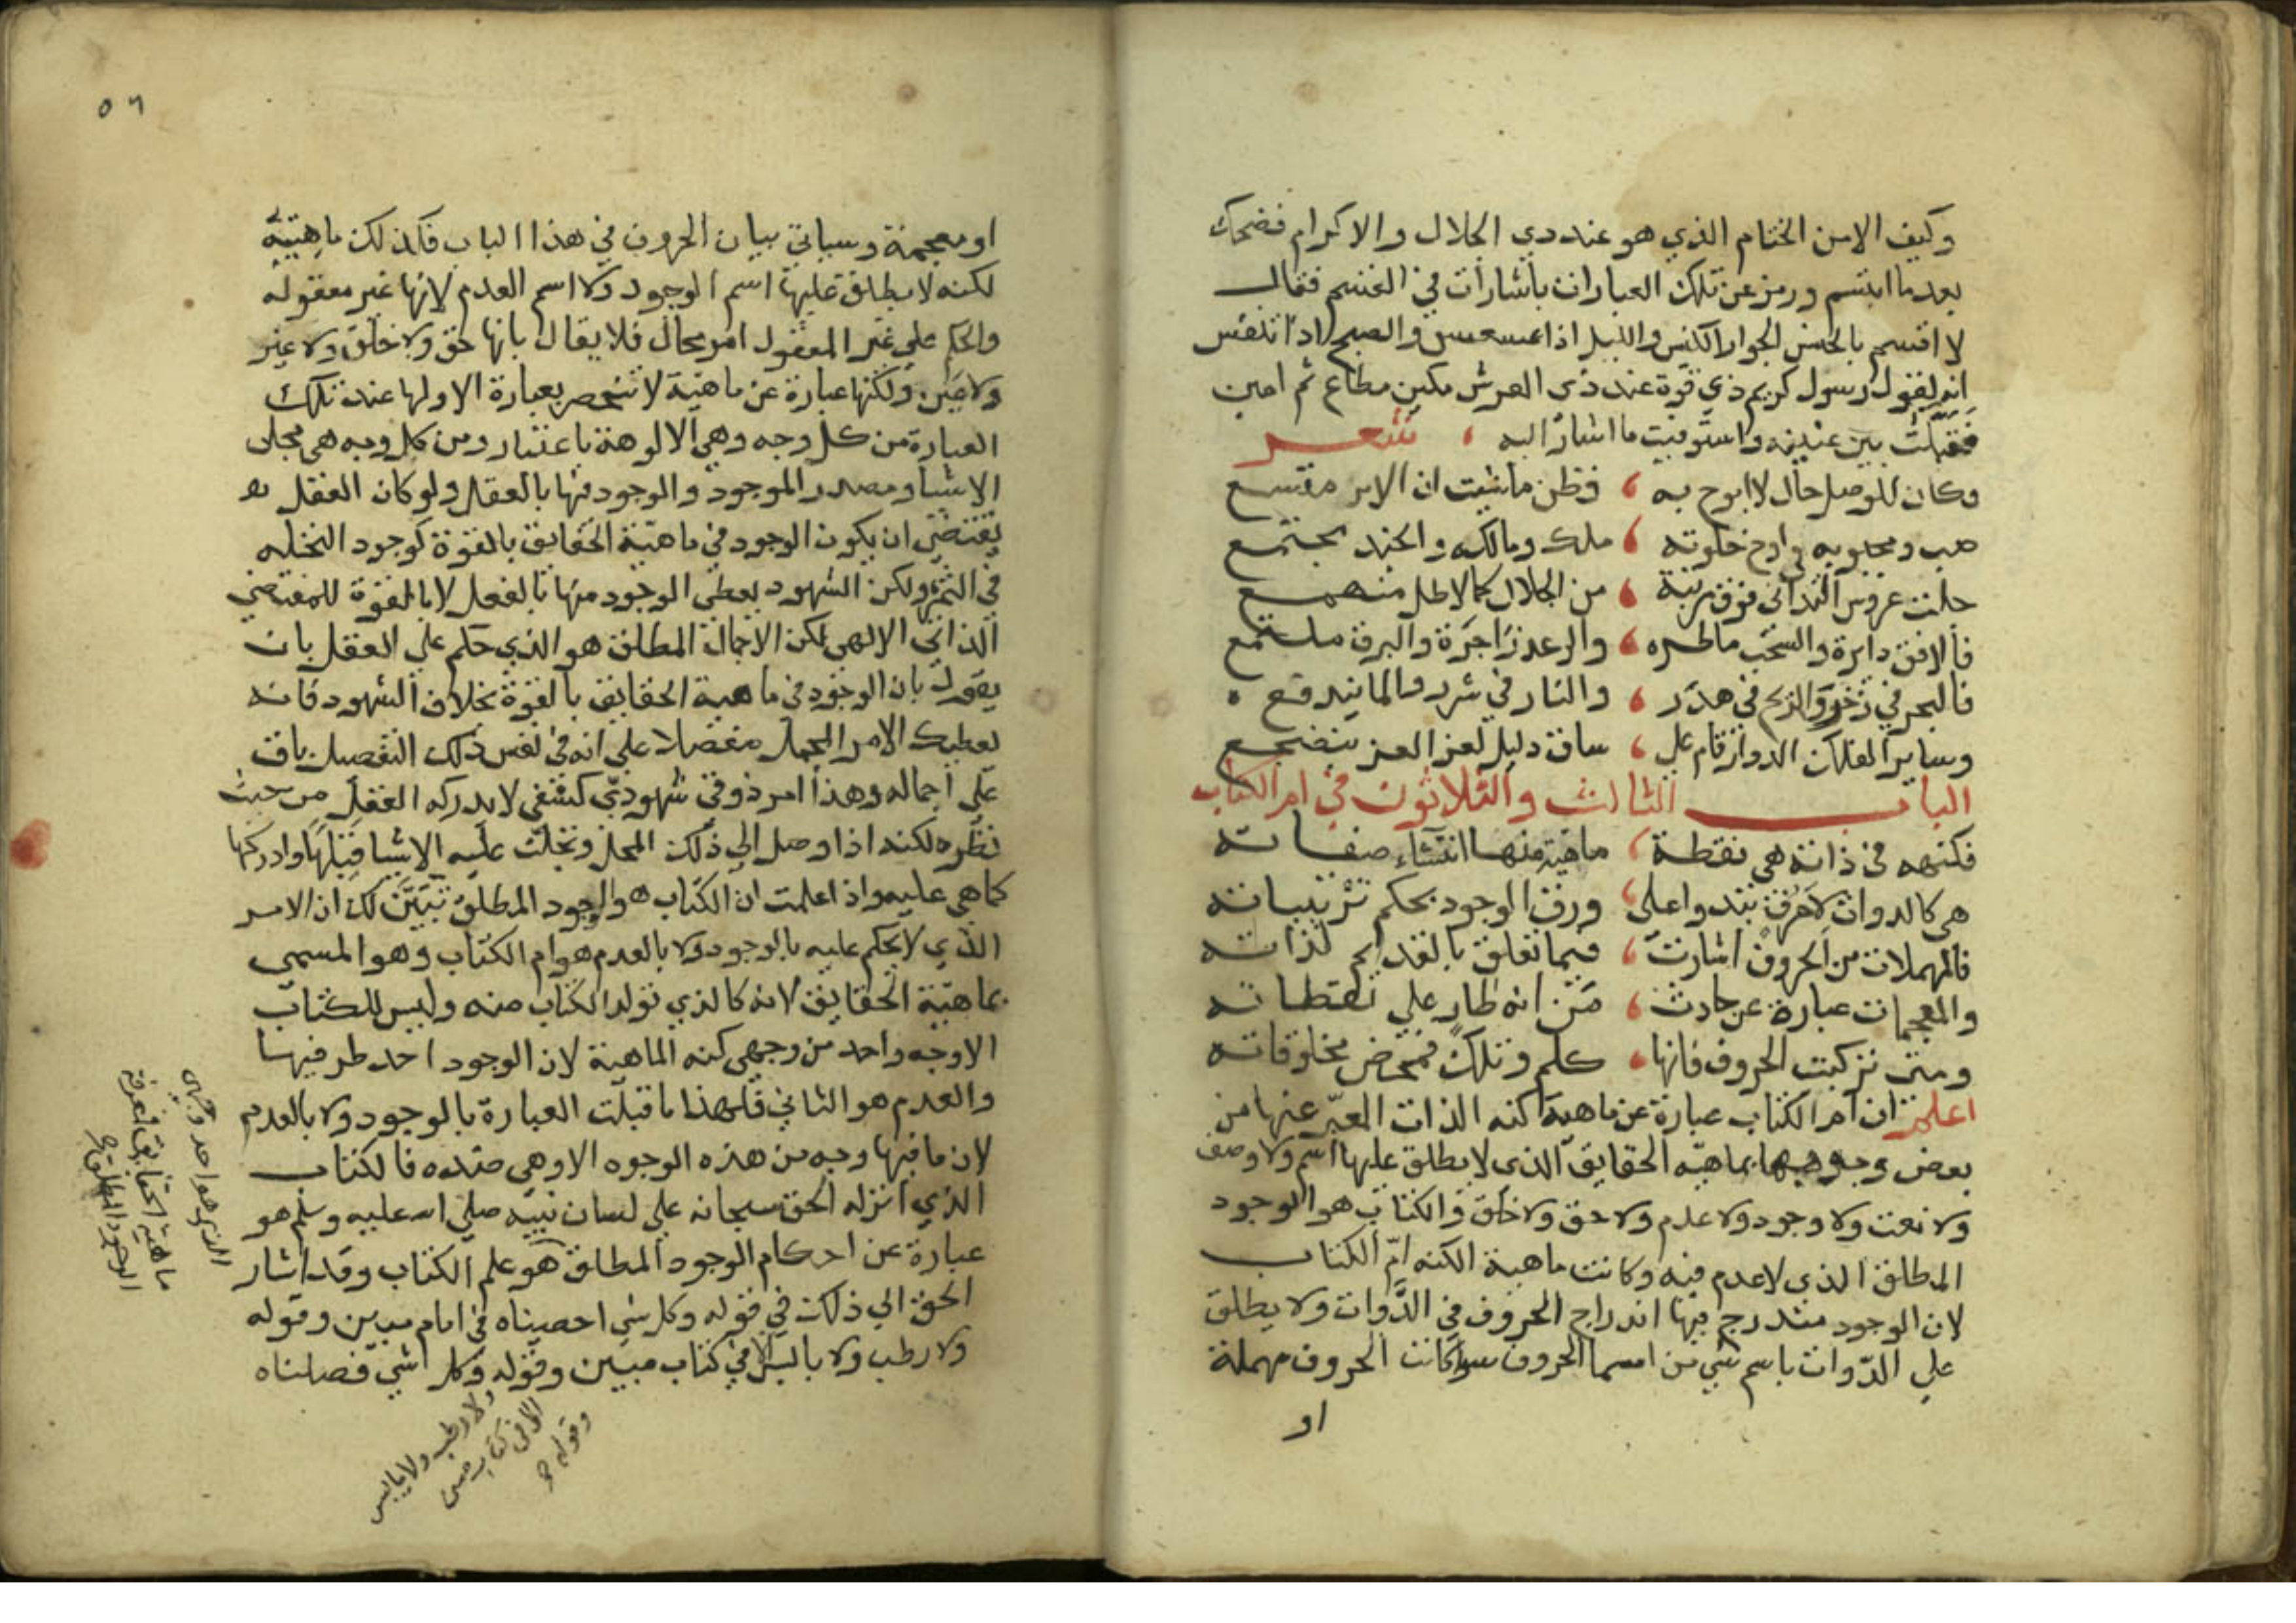 وكيف الامن الختام الذي هو عند ذي الجلال والاكرام فضحك
بعدما ابتسم ورمز عن تلك العبارات باشارات في القسم فقال
لا اقسم بالخنس الجوار الكنس والليل اذا عسعس والصبح اذا تنفس
انه لقول رسول كريم ذي قوة عند ذي العرش مكين مطاع ثم امين
فقبلت بين عينيه واستوفيت ما اشار اليه ، شعر
وكان للوصل حال لا ابوح به ، فظن ما شيت ان الامر متسع
صب ومحبوبه في اوج خلوته ، ملك ومالكه والجند مجتمع
جلت عروس التداني فوق مرتبة ، من الجلال كمالا طل منهمع
فالافق دايرة والسحب ماطره ، والرعد زاجرة والبرق ملتمع
فالبحر في زخر والريح في هدر ، والنار في شرر والما يندفع
وساير الفلك الدوار قام على ، ساق دليل لعز العز ينضجع
الباب الثالث والثلاثون في ام الكتاب
فكنهه في ذاته هي نقطة ، ماهية منها انتشاء صفاته
هي كالدواة لاحرف تبدوا على ، ورق الوجود بحكم ترتيباته
فالمهملات من الحروف اشارت ، فيما تعلق بالقديم لذاته
والمعجمات عبارة عن حادث ، من انه طار على نقطاته
ومتى تركبت الحروف فانها ، كلم وتلك فمحض مخلوقاته
اعلم ان ام الكتاب عبارة عن ماهية كنه الذات المعبر عنها من
بعض وجوهها بماهية الحقايق الذي لا يطلق عليها اسم ولا وصف
ولا نعت ولا وجود ولا عدم ولا حق ولا خلق والكتاب هو الوجود
المطلق الذي لا عدم فيه وكانت ماهية الكنه ام الكتاب
لان الوجود مندرج فيها اندراج الحروف في الدوات ولا يطلق
علي الدوات باسم شي من اسما الحروف سوا كانت الحروف مهملة
او
٥٦
او معجمة وسياتي بيان الحروف في هذا الباب فكذلك ماهية
لكنه لا يطلق عليها اسم الوجود ولا اسم العدم لانها غير معقوله
والحكم علي غير المعقول امر محال فلا يقال بانها حق ولا خلق ولا غير
ولا عين ولكنها عبارة عن ماهية لا تنحصر بعبارة الا ولها عند تلك
العبارة من كل وجه وهي الالوهة باعتبار ومن كل وجه هي محل
الاشيا ومصدر الموجود والوجود فيها بالعقل ولو كان العقل
يقتضي ان يكون الوجود في ماهية الحقايق بالقوة كوجود النخله
في التمر ولكن الشهود يعطي الوجود منها بالفعل لا بالقوة للمقتضي
الذاتي الالهي لكن الاجمال المطلق هو الذي حكم علي العقل بان
يقول بان الوجود في ماهية الحقايق بالقوة بخلاف الشهود فانه
يعطيك الامر المجمل مفصلا علي انه في نفس ذلك التفصيل باق
علي اجماله وهذا امر ذوقي شهودي كشفي لا يدركه العقل من حيث
نظره لكنه اذا وصل الي ذلك المحل وتجلت عليه الاشيا قبلها وادركها
كما هي عليه واذا علمت ان الكتاب هو الوجود المطلق تبين لك ان الامر
الذي لا يحكم عليه بالوجود ولا بالعدم هو ام الكتاب وهو المسمي
بماهية الحقايق لانه كالذي تولد الكتاب منه وليس للكتاب
الا وجه واحد من وجهي كنه الماهية لان الوجود احد طرفيها
والعدم هو الثاني فلهذا ما قبلت العبارة بالوجود ولا بالعدم
لان ما فيها وجه من هذه الوجوه الا وهي ضده فالكتاب
الذي انزله الحق سبحانه علي لسان نبيه صلي الله عليه وسلم هو
عبارة عن احكام الوجود المطلق هو علم الكتاب وقد اشار
الحق الي ذلك في قوله وكل شي احصيناه في امام مبين وقوله
ولا رطب ولا يابس الا في كتاب مبين وقوله وكل شي فصلناه
الذي هو احد وجهي
ماهية الحقايق فمعرفة
الوجود المطلق
ولا رطب ولا يابس
الا في كتاب مبين
وقوله